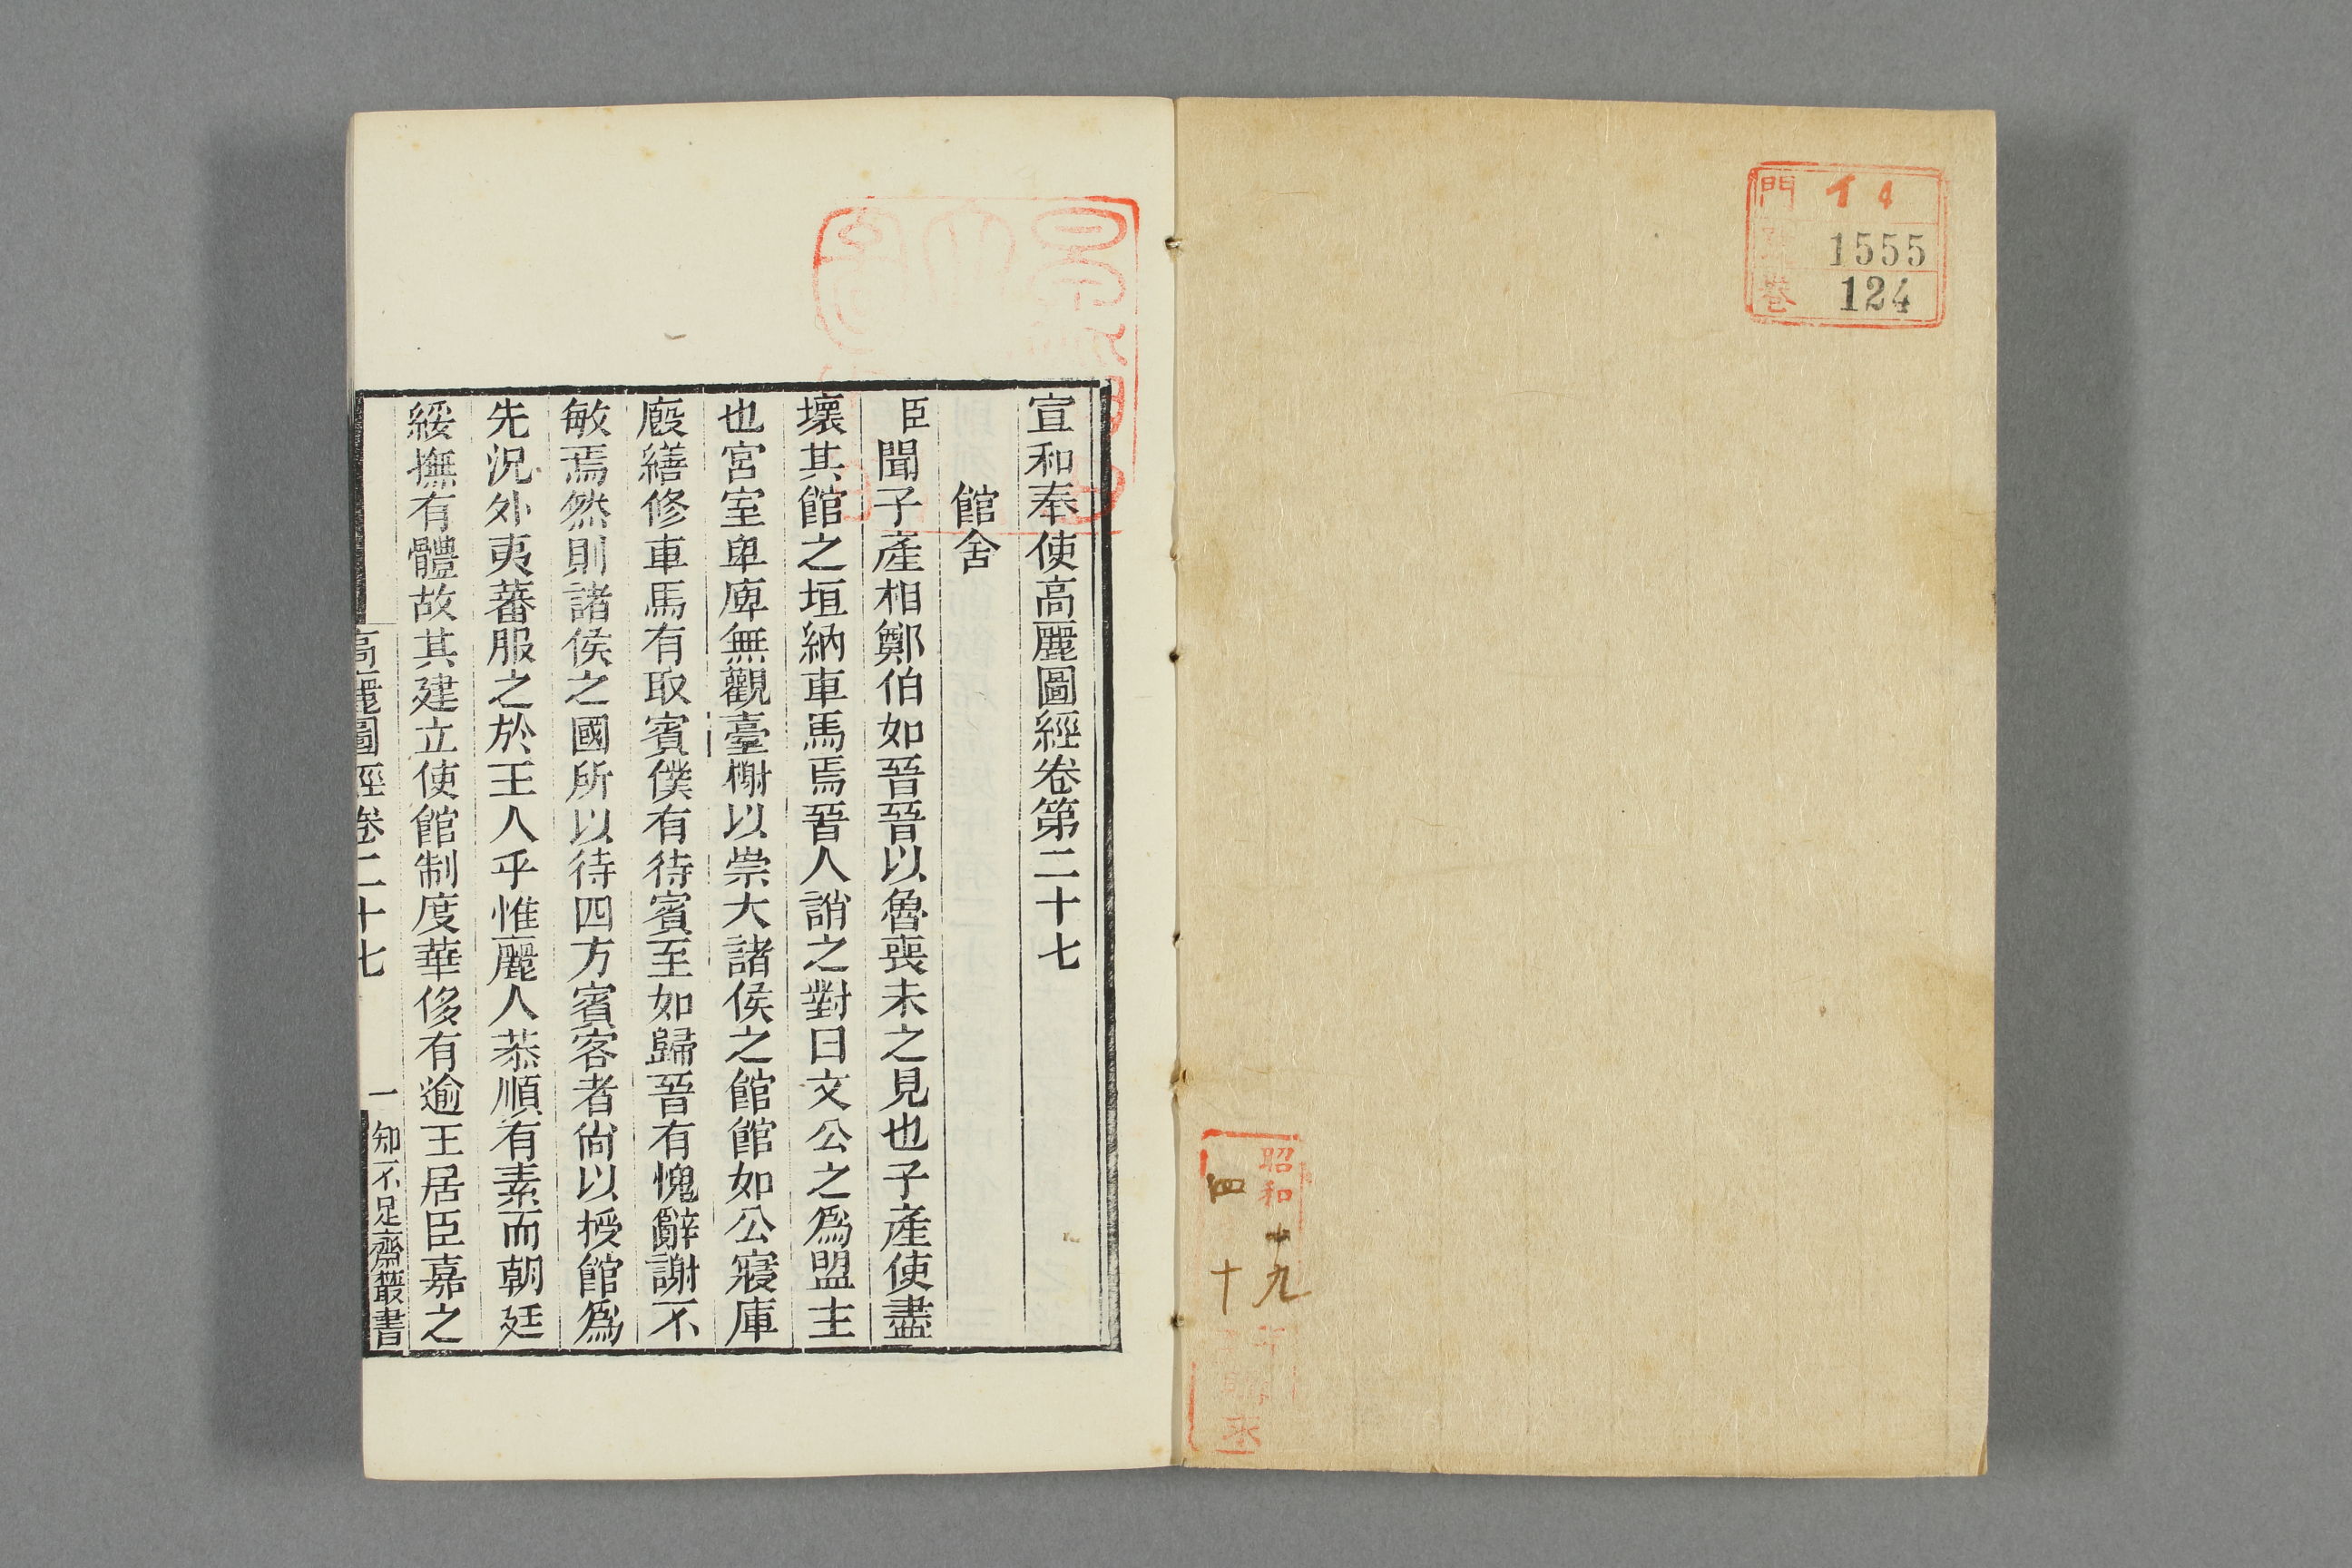 門 イ 4
1555
巻 124
昭和 十九
四 十
宣和奉使高麗圖經卷第二十七
館舍
臣聞子產相鄭伯如晉晉以魯喪未之見也子產使盡
壞其館之垣納車馬焉晉人誚之對曰文公之爲盟主
也宮室卑庳無觀臺榭以崇大諸侯之館館如公寢庫
廄繕修車馬有取賓僕有待賓至如歸晉有愧辭謝不
敏焉然則諸侯之國所以待四方賓客者尙以授館爲
先況外夷蕃服之於王人乎惟麗人恭順有素而朝廷
綏撫有體故其建立使館制度華侈有逾王居臣嘉之
高麗圖經卷二十七 一 知不足齋叢書